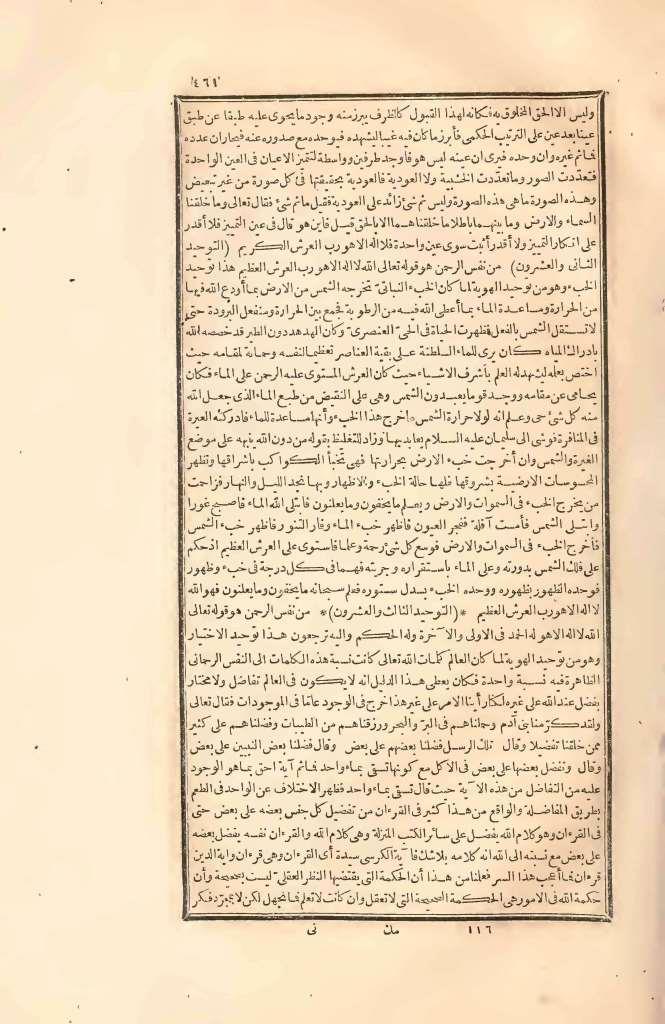 ٤٦١
وليس الا الحق المخلوق به فكانه لهذا القبول كالظرف يبرز منه وجود ما يحوى عليه طبقا عن طبق
عينا بعد عين على الترتيب الحكمى فأبرز ما كان فيه غيبا ليشهده فيوحده مع صدوره عنه فيحار ان عدده
فاثم غيره وان وحده فيرى ان عينه ليس هو فأوجد طرفين وواسطة لتتميز الاعيان فى العين الواحدة
فتعددت الصور وما تعددت الخشبية ولا العودية فالعودية بحقيقتها فى كل صورة من غير تبعيض
وهذه الصورة ما هى هذه الصورة وليس ثم شئ زائد على العودية فقيل ما ثم شئ فقال تعالى وما خلقنا
السماء والارض وما بينهما باطلا ما خلقناهما الا بالحق قيل فاين هو قال فى عين التمييز فلا أقدر
على انكار التمييز ولا أقدر أثبت سوى عين واحدة فلا اله الا هو رب العرش الكريم (التوحيد
الثانى والعشرون) من نفس الرحمن هو قوله تعالى الله لا اله الا هو رب العرش العظيم هذا توحيد
الخبء وهو من توحيد الهوية لما كان الخبء النباتى تخرجه الشمس من الارض بما أودع الله فيها
من الحرارة ومساعدة الماء بما أعطى الله فيه من الرطوبة فجمع بين الحرارة ومنفعل البرودة حتى
لا تستقل الشمس بالفعل فظهرت الحياة فى الحى العنصرى وكان الهدهد دون الطير قد خصصه الله
بادراك المياه كان يرى للماء السلطنة على بقية العناصر تعظيما لنفسه وحماية لمقامه حيث
اختص بعلمه ليشهد له العلم بأشرف الاشياء حيث كان العرش المستوى عليه الرحمن على الماء فكان
يحامى عن مقامه ووجد قوما يعبدون الشمس وهى على النقيض من طبع الماء الذى جعل الله
منه كل شئ حى وعلم انه لولا حرارة الشمس ما خرج هذا الخبء وأنها مساعدة للماء فادركته الغيرة
فى المنافرة فوشى الى سليمان عليه السلام بعابديها وزاد للتغليظ بقوله من دون الله ينبهه على موضع
الغيرة والشمس وان أخرجت خبء الارض بحرارتها فهى تخبأ الكواكب باشراقها وتظهر
المحسوسات الارضية بشروقها فلها حالة الخبء والاظهار وبها نجد الليل والنهار فزاحمت
من يخرج الخبء فى السموات والارض ويعلم ما يخفون وما يعلنون فابتلى الله الماء فاصبح غورا
وابتلى الشمس فأمست آفلة ففجر العيون فاظهر خبء الماء وفار التنور فاظهر خبء الشمس
فأخرج الخبء فى السموات والارض فوسع كل شئ رحمة وعلما فاستوى على العرش العظيم اذ حكم
على فلك الشمس بدورته وعلى الماء باستقراره وجريته فهما فى كل درجة فى خبء وظهور
فوحده الظهور بظهوره ووحده الخبء بسدل ستوره فعلم سبحانه ما يخفون وما يعلنون فهو الله
لا اله الا هو رب العرش العظيم *(التوحيد الثالث والعشرون)* من نفس الرحمن هو قوله تعالى
الله لا اله الا هو له الحمد فى الاولى والآخرة وله الحكم واليه ترجعون هذا توحيد الاختيار
وهو من توحيد الهوية لما كان العالم كلمات الله تعالى كانت نسبة هذه الكلمات الى النفس الرحمانى
الظاهرة فيه نسبة واحدة فكان يعطى هذا الدليل انه لا يكون فى العالم تفاضل ولا مختار
بفضل عند الله على غيره لكنا رأينا الامر على غير هذا خرج فى الوجود عاما فى الموجودات فقال تعالى
ولقد كرمنا بنى آدم وحملناهم فى البر والبحر ورزقناهم من الطيبات وفضلناهم على كثير
ممن خلقنا تفضيلا وقال تلك الرسل فضلنا بعضهم على بعض وقال فضلنا بعض النبيين على بعض
وقال ونفضل بعضها على بعض فى الاكل مع كونها تسقى بماء واحد فاثم آية احق بما هو الوجود
عليه من التفاضل من هذه الآية حيث قال تسقى بماء واحد فظهر الاختلاف عن الواحد فى الطعم
بطريق المفاضلة والواقع من هذا كثير فى القرءان من تفضيل كل جنس بعضه على بعض حتى
فى القرءان وهو كلام الله يفضل على سائر الكتب المنزلة وهى كلام الله والقرءان نفسه يفضل بعضه
على بعض مع نسبته الى الله انه كلامه بلا شك فآية الكرسى سيدة أى القرءان وهى قرءان واية الدين
قرءان فما أعجب هذا السر فعلنا من هذا أن الحكمة التى يقتضيها النظر العقلى ليست بصحيحة وأن
حكمة الله فى الامور هى الحكمة الصحيحة التى لا تعقل وان كانت لا تعلم فما نجهل لكن لا بمجرد فكر
١١٦ مك نى